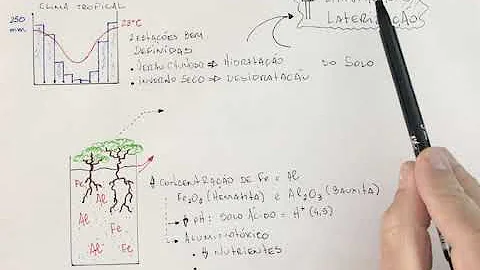 CLIMA TROPICAL
250 mm
23°C
2 ESTAÇÕES BEM
DEFINIDAS
• VERÃO CHUVOSO ⇒ HIDRATAÇÃO
• INVERNO SECO ⇒ DESIDRATAÇÃO
DO SOLO
LATERIZAÇÃO
Fe Fe
Al Al
Fe
Al Fe
CONCENTRAÇÃO DE Fe e Al
Fe₂O₃ (HEMATITA) e Al₂O₃ (BAUXITA)
pH: SOLO ÁCIDO = H⁺ (4,5)
NUTRIENTES